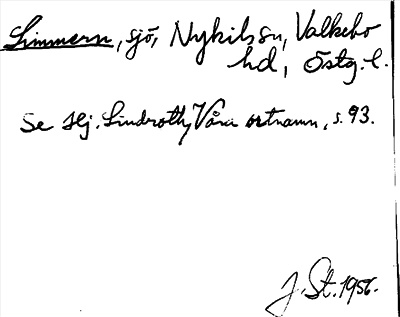 Limmern, sjö, Nykils sn, Valkebo
hd, Östg. l.
Se Hj. Lindroth, Våra ortnamn, s. 93.
J. St. 1956.